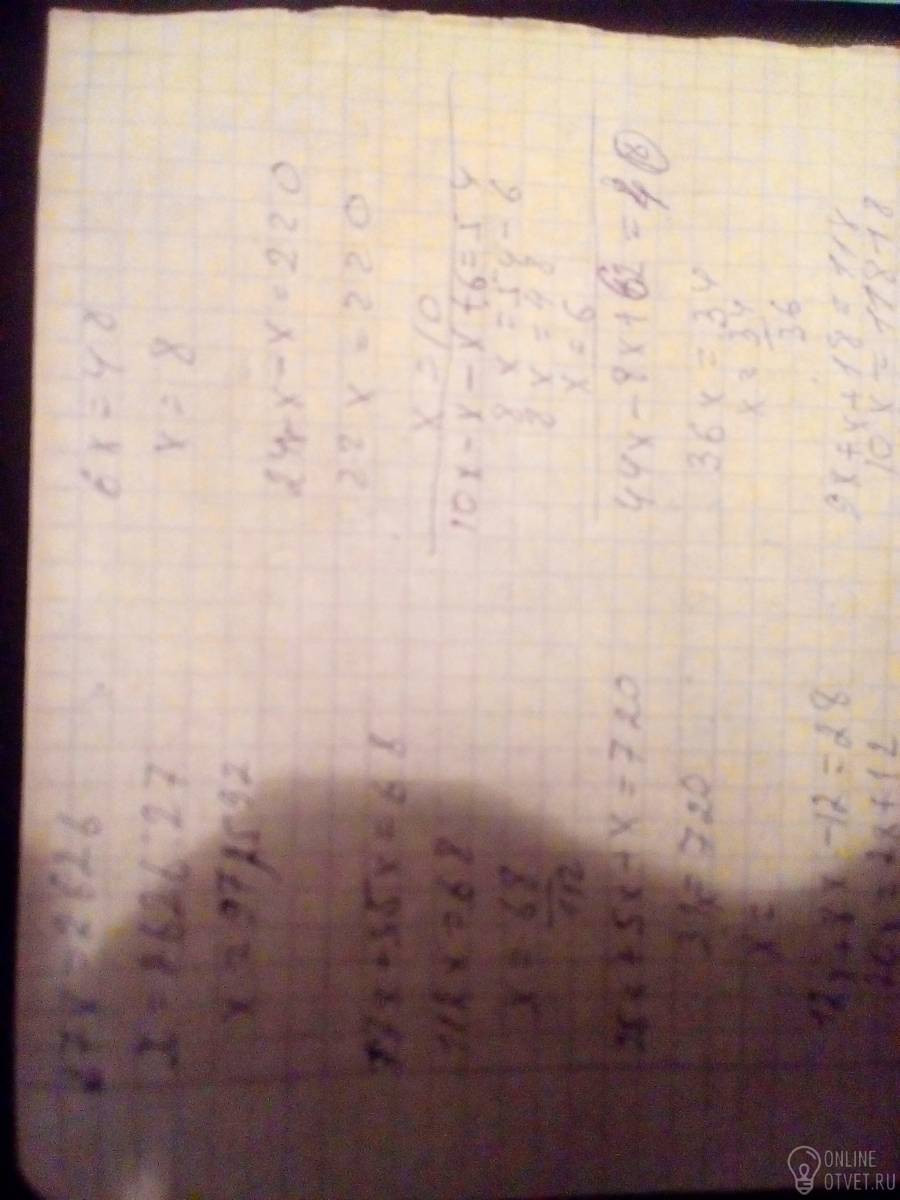 27x = 2626
x = 2626:27
x = 97,2592
77x + 35x = 68
112x = 68
x = 68
112
+ 5x - x = 720
= 720
x =
12x + 8x - 12 = 28
6x = 48
x = 8
24x - x - x = 220
22x = 220
x = 10
10x - x - x + 6 = 54
8x = 54 - 6
8x = 48
x = 6
44x - 8x + 62 =
36x = 34
x = 34
36
9x + x + 18 = 118
10x = 118 - 18
ONLINE
OTVET.RU